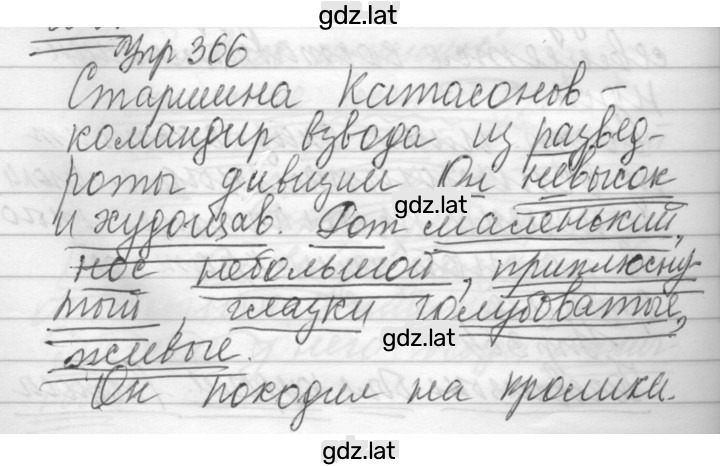 gdz.lat
Упр 366
Старшина Катасонов –
командир взвода из развед-
роты дивизии Он невысок
gdz.lat
и худощав. Рот маленький,
нос небольшой, приплюсну
тый, глазки голубоватые,
gdz.lat
живые.
Он походил на кролика.
gdz.lat